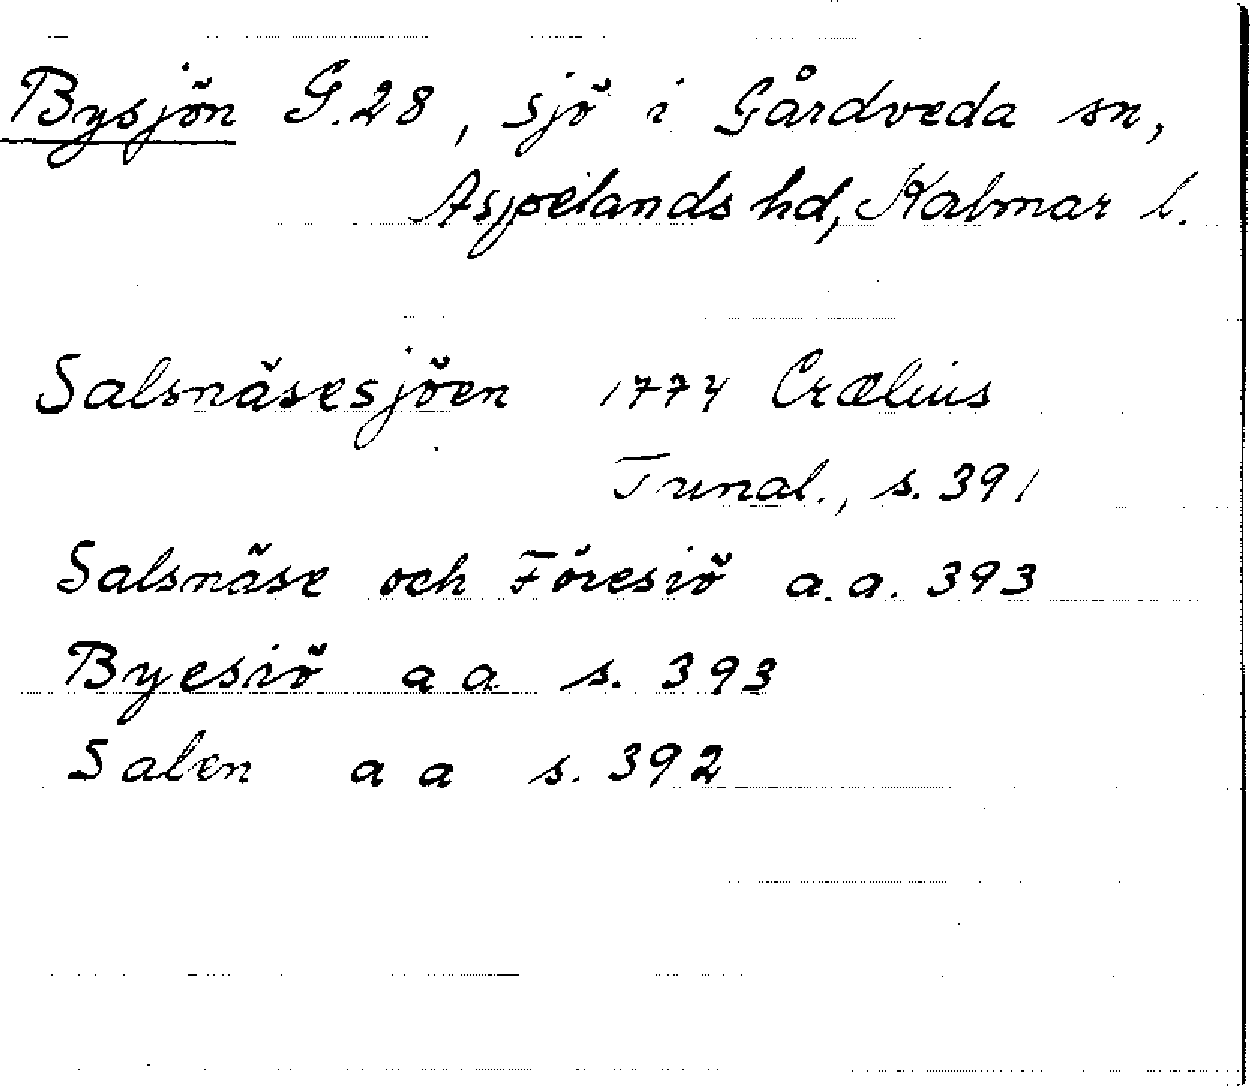 Bysjön G.28, sjö i Gårdveda sn,
Aspelands hd, Kalmar l.
Salsnäsesjöen 1774 Crælius
Tunal., s. 391
Salsnäse och Föresiö a.a. 393
Byesiö a a s. 393
Salen a a s. 392